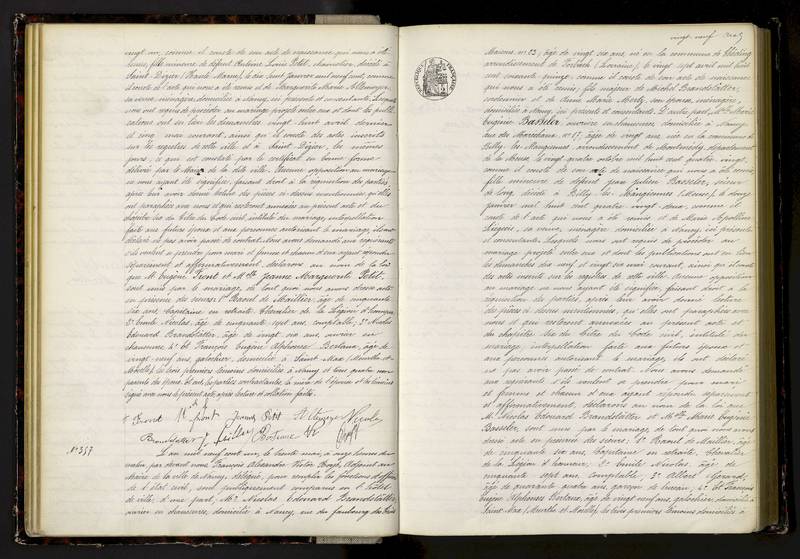 vingt un, comme il conste de son acte de naissance qui nous a été
remis, fille mineure de défunt Antoine Louis Petit, charretier, décédé à
Saint-Dizier (Haute-Marne), le dix huit janvier mil neuf cent, comme
il conste de l'acte qui nous a été remis et de Marguerite Marie
sa veuve, ménagère, domiciliée à Nancy, ici présente et consentante. Lesquels
nous ont requis de procéder au mariage projeté entre eux et dont les publi-
cations ont eu lieu les dimanches, vingt huit avril dernier
et cinq mai courant, ainsi qu'il conste des actes inscrits
sur les registres de cette ville et à Saint-Dizier, les mêmes
jours, ce qui est constaté par le certificat en bonne forme
délivré par le Maire de la dite ville. Aucune opposition au mariage
ne nous ayant été signifiée, faisant droit à la réquisition des parties,
après leur avoir donné lecture des pièces ci-dessus mentionnées, qu'elles
ont paraphées avec nous et qui resteront annexées au présent acte et du
chapitre six du titre du Code civil, intitulé du mariage, interpellation
faite aux futurs époux et aux personnes autorisant le mariage, ils ont
déclaré ne pas avoir passé de contrat. Nous avons demandé aux requérants
s'ils veulent se prendre pour mari et femme et chacun d'eux ayant répondu
séparément et affirmativement, déclarons au nom de la loi
que M. Eugène Front et Mlle Jeanne Marguerite Petit,
sont unis par le mariage, de tout quoi nous avons dressé acte
en présence des sieurs 1° Raoul de Maillier, âgé de cinquante
six ans, capitaine en retraite, Chevalier de la Légion d'honneur,
2° Emile Nicolas, âgé de cinquante sept ans, comptable, 3° Nicolas
Edouard Brandstätter, âgé de vingt six ans, ouvrier en
chaussures, 4° et François Eugène Alphonse Bertaux, âgé de
vingt-neuf ans, galochier, domicilié à Saint Max (Meurthe-et-
Moselle), les trois premiers témoins domiciliés à Nancy et tous quatre non
parents des époux. Et ont, les parties contractantes, la mère de l'épouse et les témoins
signé avec nous le présent acte après lecture et collation faite.
Front Jeanne Petit Nicolas
Brandstätter
N° 357
L'an mil neuf cent un, le trente mai, à onze heures du
matin, par devant nous, François Alexandre Adjoint au
Maire de la ville de Nancy, délégué, pour remplir les fonctions d'officier
de l'état civil, sont publiquement comparus en l'hôtel
de ville, d'une part, Mr Nicolas Edouard Brandstätter,
ouvrier en chaussures, domicilié à Nancy, rue du faubourg des Trois
vingt neuf
Maisons n° 23, âgé de vingt six ans, né en la commune de
arrondissement de Forbach (Lorraine), le vingt sept avril mil huit
cent soixante quinze, comme il conste de son acte de naissance
qui nous a été remis, fils majeur de Michel Brandstätter,
cordonnier et de Anne Marie Mertz, son épouse, ménagère,
domiciliés à Nancy, ici présents et consentants. D'autre part, Mlle Marie
Eugénie Basseler, ouvrière en chaussures, domiciliée à Nancy,
rue des Maréchaux n° 17, âgée de vingt ans, née en la commune de
Billy les Mangiennes arrondissement de Montmédy, département
de la Meuse, le vingt quatre octobre mil huit cent quatre vingt,
comme il conste de son acte de naissance qui nous a été remis,
fille mineure de défunt Jean Julien Basseler, scieur
de long, décédé à Billy les Mangiennes (Meuse), le
janvier mil huit cent quatre vingt deux, comme il
conste de l'acte qui nous a été remis, et de Marie Apolline
sa veuve, ménagère, domiciliée à Nancy, ici présente
et consentante. Lesquels nous ont requis de procéder au
mariage projeté entre eux et dont les publications ont eu lieu
les dimanches dix neuf et vingt six mai courant ainsi qu'il conste
des actes inscrits sur les registres de cette ville. Aucune opposition
au mariage ne nous ayant été signifiée, faisant droit à la
réquisition des parties, après leur avoir donné lecture
des pièces ci-dessus mentionnées, qu'elles ont paraphées avec
nous et qui resteront annexées au présent acte et
du chapitre six du titre du Code civil, intitulé du
mariage, interpellation faite aux futurs époux et
aux personnes autorisant le mariage, ils ont déclaré
ne pas avoir passé de contrat. Nous avons demandé
aux requérants s'ils veulent se prendre pour mari
et femme et chacun d'eux ayant répondu séparément
et affirmativement, déclarons au nom de la loi que
M. Nicolas Edouard Brandstätter et Mlle Marie Eugénie
Basseler, sont unis par le mariage, de tout quoi nous avons
dressé acte en présence des sieurs, 1° Raoul de Maillier, âgé
de cinquante six ans, capitaine en retraite, Chevalier
de la Légion d'honneur, 2° Emile Nicolas, âgé de
cinquante sept ans, comptable, 3° Albert Gérard,
âgé de quarante quatre ans, garçon de bureau, 4° et François
Eugène Alphonse Bertaux, âgé de vingt neuf ans, galochier, domicilié à
Saint Max (Meurthe et Moselle), les trois premiers témoins domiciliés à